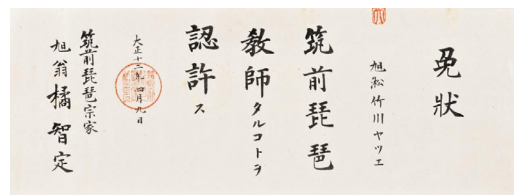 免狀
旭淞竹川ヤツエ
筑前琵琶
教師タルコトヲ
認許ス
大正十三年四月九日
筑前琵琶宗家
旭翁橘智定